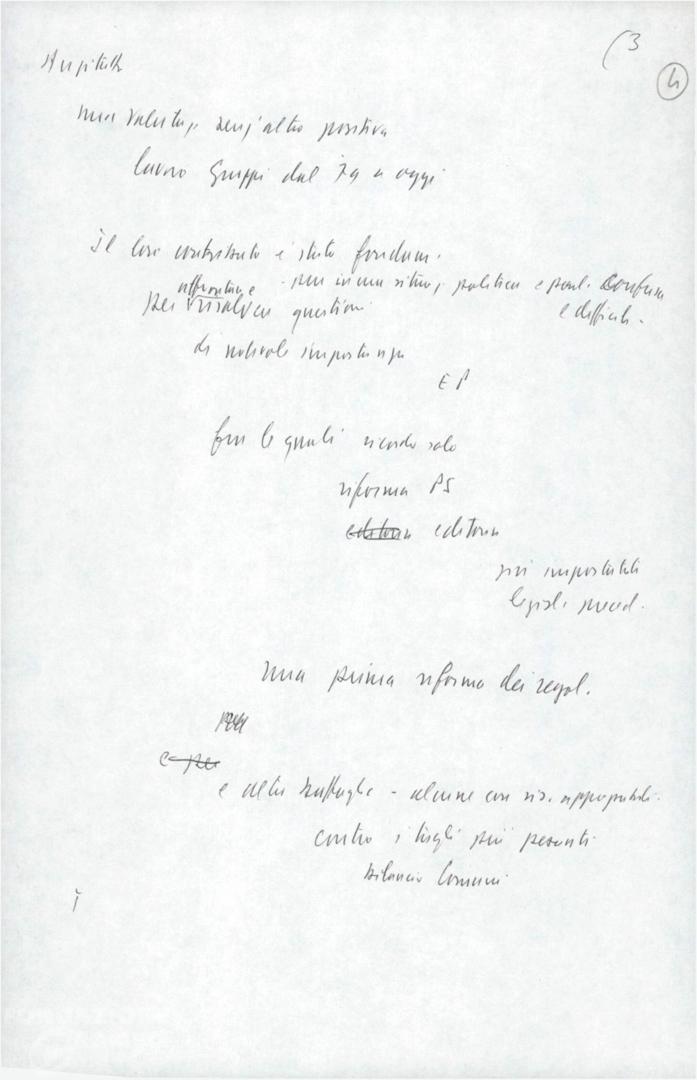 (3
4
una valutaz. senz'altro positiva
lavoro Gruppi dal 79 a oggi
Il loro contributo è stato fondam.
affrontare - pur in una situaz. politica e parl. confusa
per risolvere questioni e difficile.
di notevole importanza
EP
fra le quali ricordo solo
riforma PS
editoria editoria
più importanti
legisl. preced.
una prima riforma dei regol.
e per
e altre battaglie - alcune con ris. apprezzabili.
contro i tagli più pesanti
bilancio Comuni